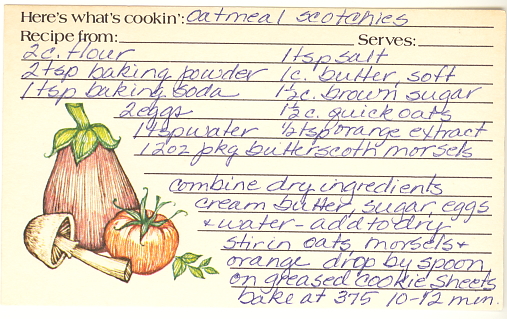 Here's what's cookin': Oatmeal Scotchies
Recipe from: Serves:
2c. flour 1tsp salt
2tsp baking powder 1c. butter, soft
1tsp baking soda 1½c. brown sugar
2eggs 1½c. quick oats
1tsp water ½tsp orange extract
12oz pkg butterscoth morsels
combine dry ingredients
cream butter, sugar, eggs
+ water - add to dry
stir in oats, morsels +
orange drop by spoon
on greased cookie sheets
bake at 375 10-12 min.